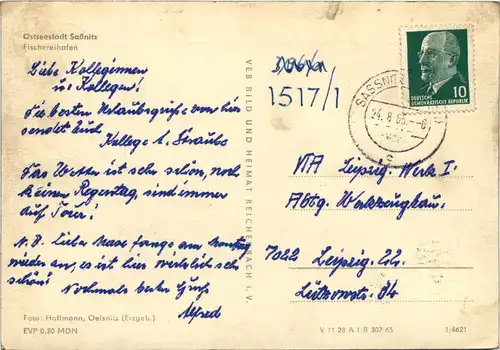 Ostseestadt Saßnitz
Fischereihafen
Liebe Kolleginnen
u. Kollegen!
Die besten Urlaubsgrüße von hier
sendet Euch
Kollege A.
Das Wetter ist sehr schön, noch
keinen Regentag, sind immer
auf Tour!
N.B. Lieber fange am Montag
wieder an, es ist hier wirklich sehr
schön!
Nochmals beste Grüße
Alfred
Foto: Hoffmann, Oelsnitz (Erzgeb.)
EVP 0,20 MDN
VEB BILD UND HEIMAT REICHENBACH I. V.
1517/1
SASSNITZ
24. 8. 65
DEUTSCHE
DEMOKRATISCHE REPUBLIK
10
VTA Leipzig Werk I
Abtg. Werkzeugbau.
7022 Leipzig 22.
Lützowstr. 34
V 11 28 A 1 B 307 65
1/4621